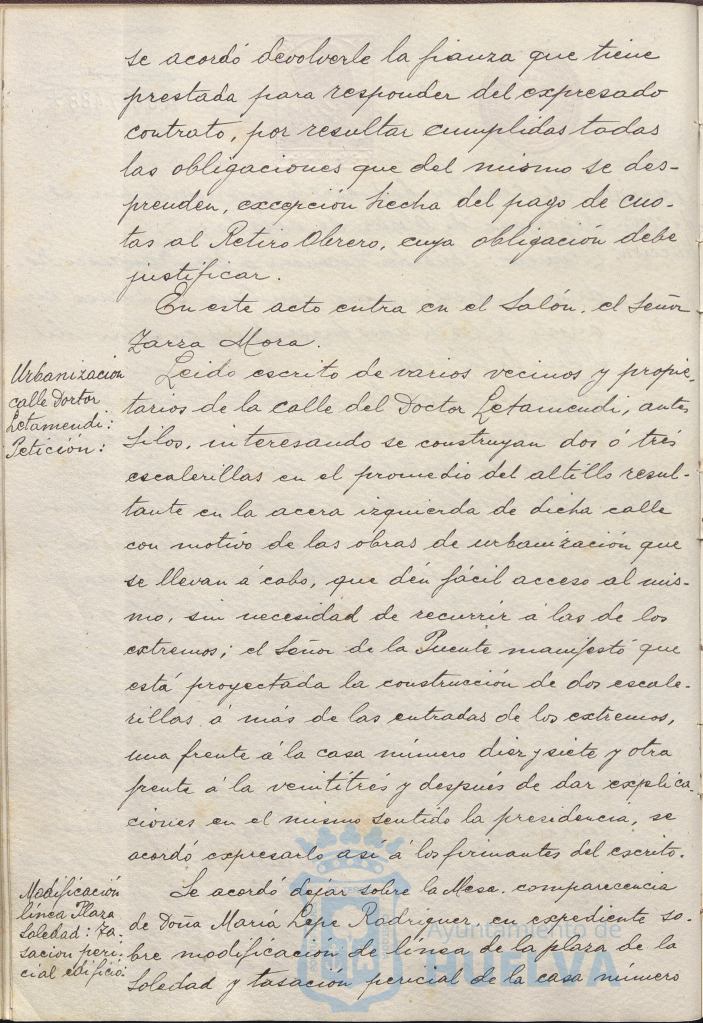 se acordó devolverle la fianza que tiene
prestada para responder del expresado
contrato, por resultar cumplidas todas
las obligaciones que del mismo se des-
prenden, excepción hecha del pago de cuo-
tas al Retiro Obrero, cuya obligación debe
justificar.
En este acto entra en el Salón, el Señor
Zarza Mora.
Urbanización
calle Dortor
Letamendi:
Petición:
Leido escrito de varios vecinos y propie-
tarios de la calle del Doctor Letamendi, antes
Silos, interesando se construyan dos ó tres
escalerillas en el promedio del altillo resul-
tante en la acera izquierda de dicha calle
con motivo de las obras de urbanización que
se llevan á cabo, que dén fácil acceso al mis-
mo, sin necesidad de recurrir á las de los
extremos; el Señor de la Puente manifestó que
está proyectada la construcción de dos escale-
rillas á más de las entradas de los extremos,
una frente á la casa número diez y siete y otra
frente á la veintitrés y después de dar explica-
ciones en el mismo sentido la presidencia, se
acordó expresarlo así á los firmantes del escrito.
Modificación
línea Plaza
Soledad: Ta-
sacion peri-
cial edificio:
Se acordó dejar sobre la Mesa, comparecencia
de Doña María Lepe Rodriguez, en expediente so-
bre modificación de línea de la plaza de la
Soledad y tasación pericial de la casa número
Ayuntamiento de
HUELVA